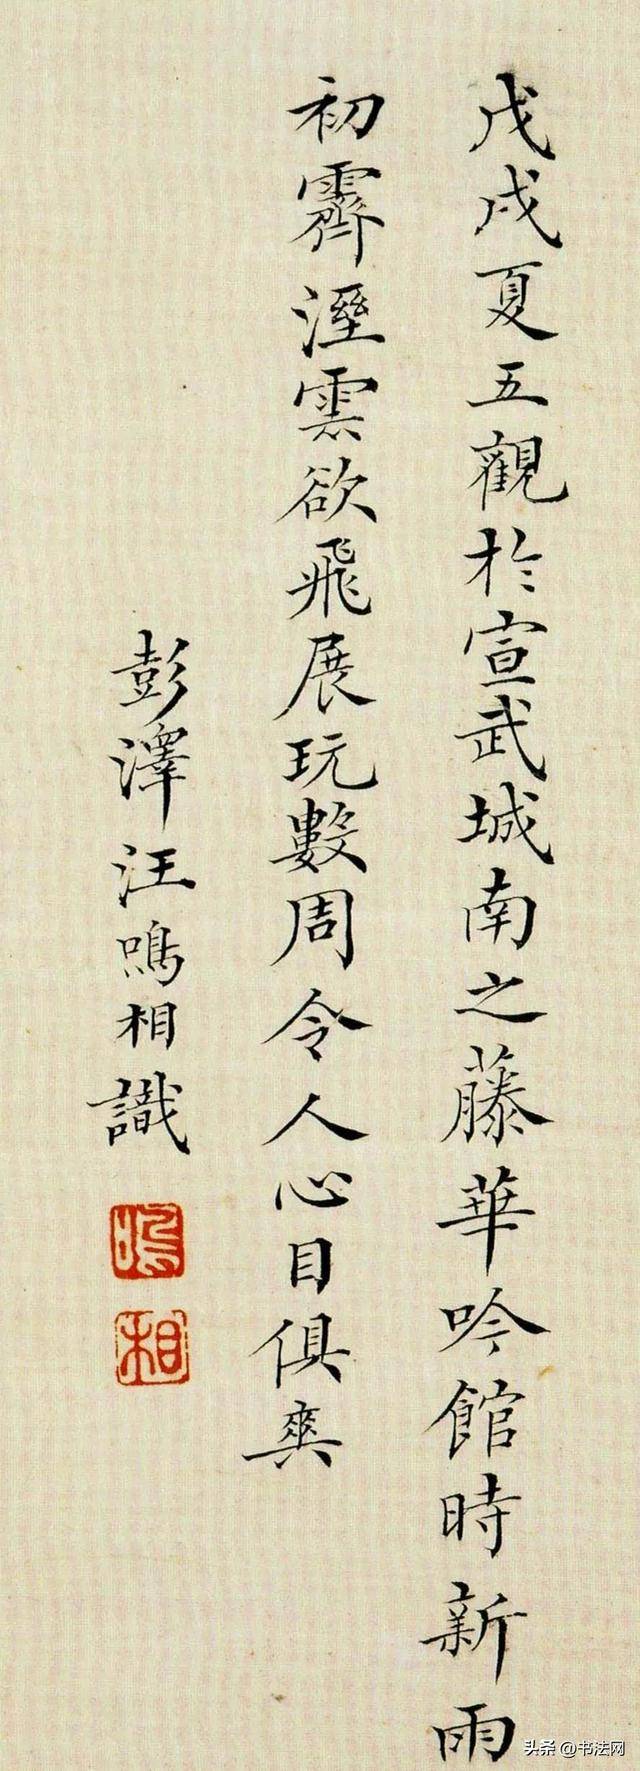 戊戌夏五觀於宣武城南之藤華吟館時新雨
初霽溼雲欲飛展玩數周令人心目俱爽
彭澤汪鳴相識
鳴
相
头条 @书法网